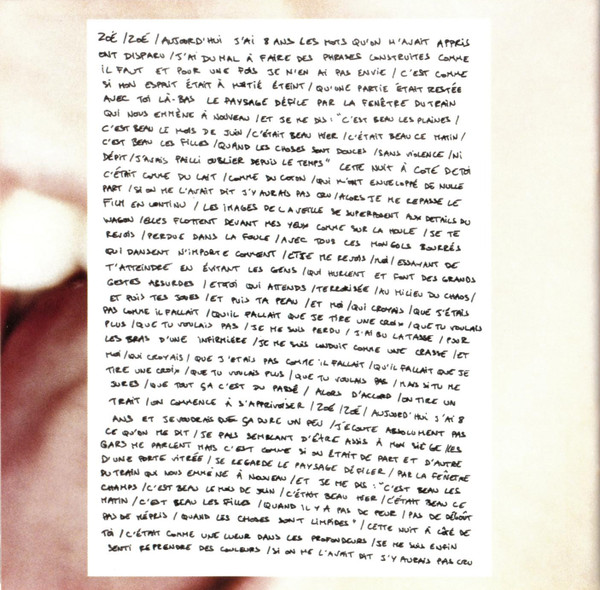 ZOÉ / ZOÉ / AUJOURD'HUI J'AI 8 ANS LES MOTS QU'ON M'AVAIT APPRIS
ONT DISPARU / J'AI DU MAL À FAIRE DES PHRASES CONSTRUITES COMME
IL FAUT ET POUR UNE FOIS JE N'EN AI PAS ENVIE / C'EST COMME
SI MON ESPRIT ÉTAIT À MOITIÉ ÉTEINT / QU'UNE PARTIE ÉTAIT RESTÉE
AVEC TOI LÀ-BAS LE PAYSAGE DÉFILE PAR LA FENÊTRE DU TRAIN
QUI NOUS EMMÈNE À NOUVEAU / ET JE ME DIS : "C'EST BEAU LES PLAINES /
C'EST BEAU LE MOIS DE JUIN / C'ÉTAIT BEAU HIER / C'ÉTAIT BEAU CE MATIN /
C'EST BEAU LES FILLES / QUAND LES CHOSES SONT DOUCES / SANS VIOLENCE / NI
DÉPIT / J'AVAIS FAILLI OUBLIER DEPUIS LE TEMPS" CETTE NUIT À COTÉ DE TOI
C'ÉTAIT COMME DU LAIT / COMME DU COTON / QUI M'ONT ENVELOPPÉ DE NULLE
PART / SI ON ME L'AVAIT DIT J'Y AURAIS PAS CRU / ALORS JE ME REPASSE LE
FILM EN CONTINU / LES IMAGES DE LA VEILLE SE SUPERPOSENT AUX DÉTAILS DU
WAGON / ELLES FLOTTENT DEVANT MES YEUX COMME SUR LA HOULE / JE TE
REVOIS / PERDUE DANS LA FOULE / AVEC TOUS CES MONGOLS BOURRÉS
QUI DANSENT N'IMPORTE COMMENT / ET JE ME REVOIS / MOI / ESSAYANT DE
T'ATTEINDRE EN ÉVITANT LES GENS / QUI HURLENT ET FONT DES GRANDS
GESTES ABSURDES / ET TOI QUI ATTENDS / TERRORISÉE / AU MILIEU DU CHAOS /
ET PUIS TES JOUES / ET PUIS TA PEAU / ET MOI / QUI CROYAIS / QUE J'ÉTAIS
PAS COMME IL FALLAIT / QU'IL FALLAIT QUE JE TIRE UNE CROIX / QUE TU VOULAIS
PLUS / QUE TU VOULAIS PAS / JE ME SUIS PERDU / J'AI BU LA TASSE / POUR
LES BRAS D'UNE INFIRMIÈRE / JE ME SUIS CONDUIT COMME UNE CRASSE / ET
MOI / QUI CROYAIS / QUE J'ETAIS PAS COMME IL FALLAIT / QU'IL FALLAIT QUE JE
TIRE UNE CROIX / QUE TU VOULAIS PLUS / QUE TU VOULAIS PAS / MAIS SI TU ME
JURES / QUE TOUT ÇA C'EST DU PASSÉ / ALORS D'ACCORD / ON TIRE UN
TRAIT / ON COMMENCE À S'APPRIVOISER / ZOÉ / ZOÉ / AUJOURD'HUI J'AI 8
ANS ET JE VOUDRAIS QUE ÇA DURE UN PEU / J'ÉCOUTE ABSOLUMENT PAS
CE QU'ON ME DIT / JE FAIS SEMBLANT D'ÊTRE ASSIS À MON SIÈGE / LES
GARS ME PARLENT MAIS C'EST COMME SI ON ÉTAIT DE PART ET D'AUTRE
D'UNE PORTE VITRÉE / JE REGARDE LE PAYSAGE DÉFILER / PAR LA FENÊTRE
DU TRAIN QUI NOUS EMMÈNE À NOUVEAU / ET JE ME DIS : "C'EST BEAU LES
CHAMPS / C'EST BEAU LE MOIS DE JUIN / C'ÉTAIT BEAU HIER / C'ÉTAIT BEAU CE
MATIN / C'EST BEAU LES FILLES / QUAND IL Y A PAS DE PEUR / PAS DE DÉGOÛT
PAS DE MÉPRIS / QUAND LES CHOSES SONT LIMPIDES" / CETTE NUIT À CÔTÉ DE
TOI / C'ÉTAIT COMME UNE LUEUR DANS LES PROFONDEURS / JE ME SUIS ENFIN
SENTI REPRENDRE DES COULEURS / SI ON ME L'AVAIT DIT J'Y AURAIS PAS CRU